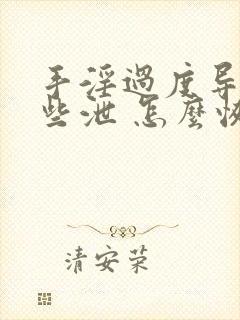 手淫過度导
些泄 怎麼恢
清安荣